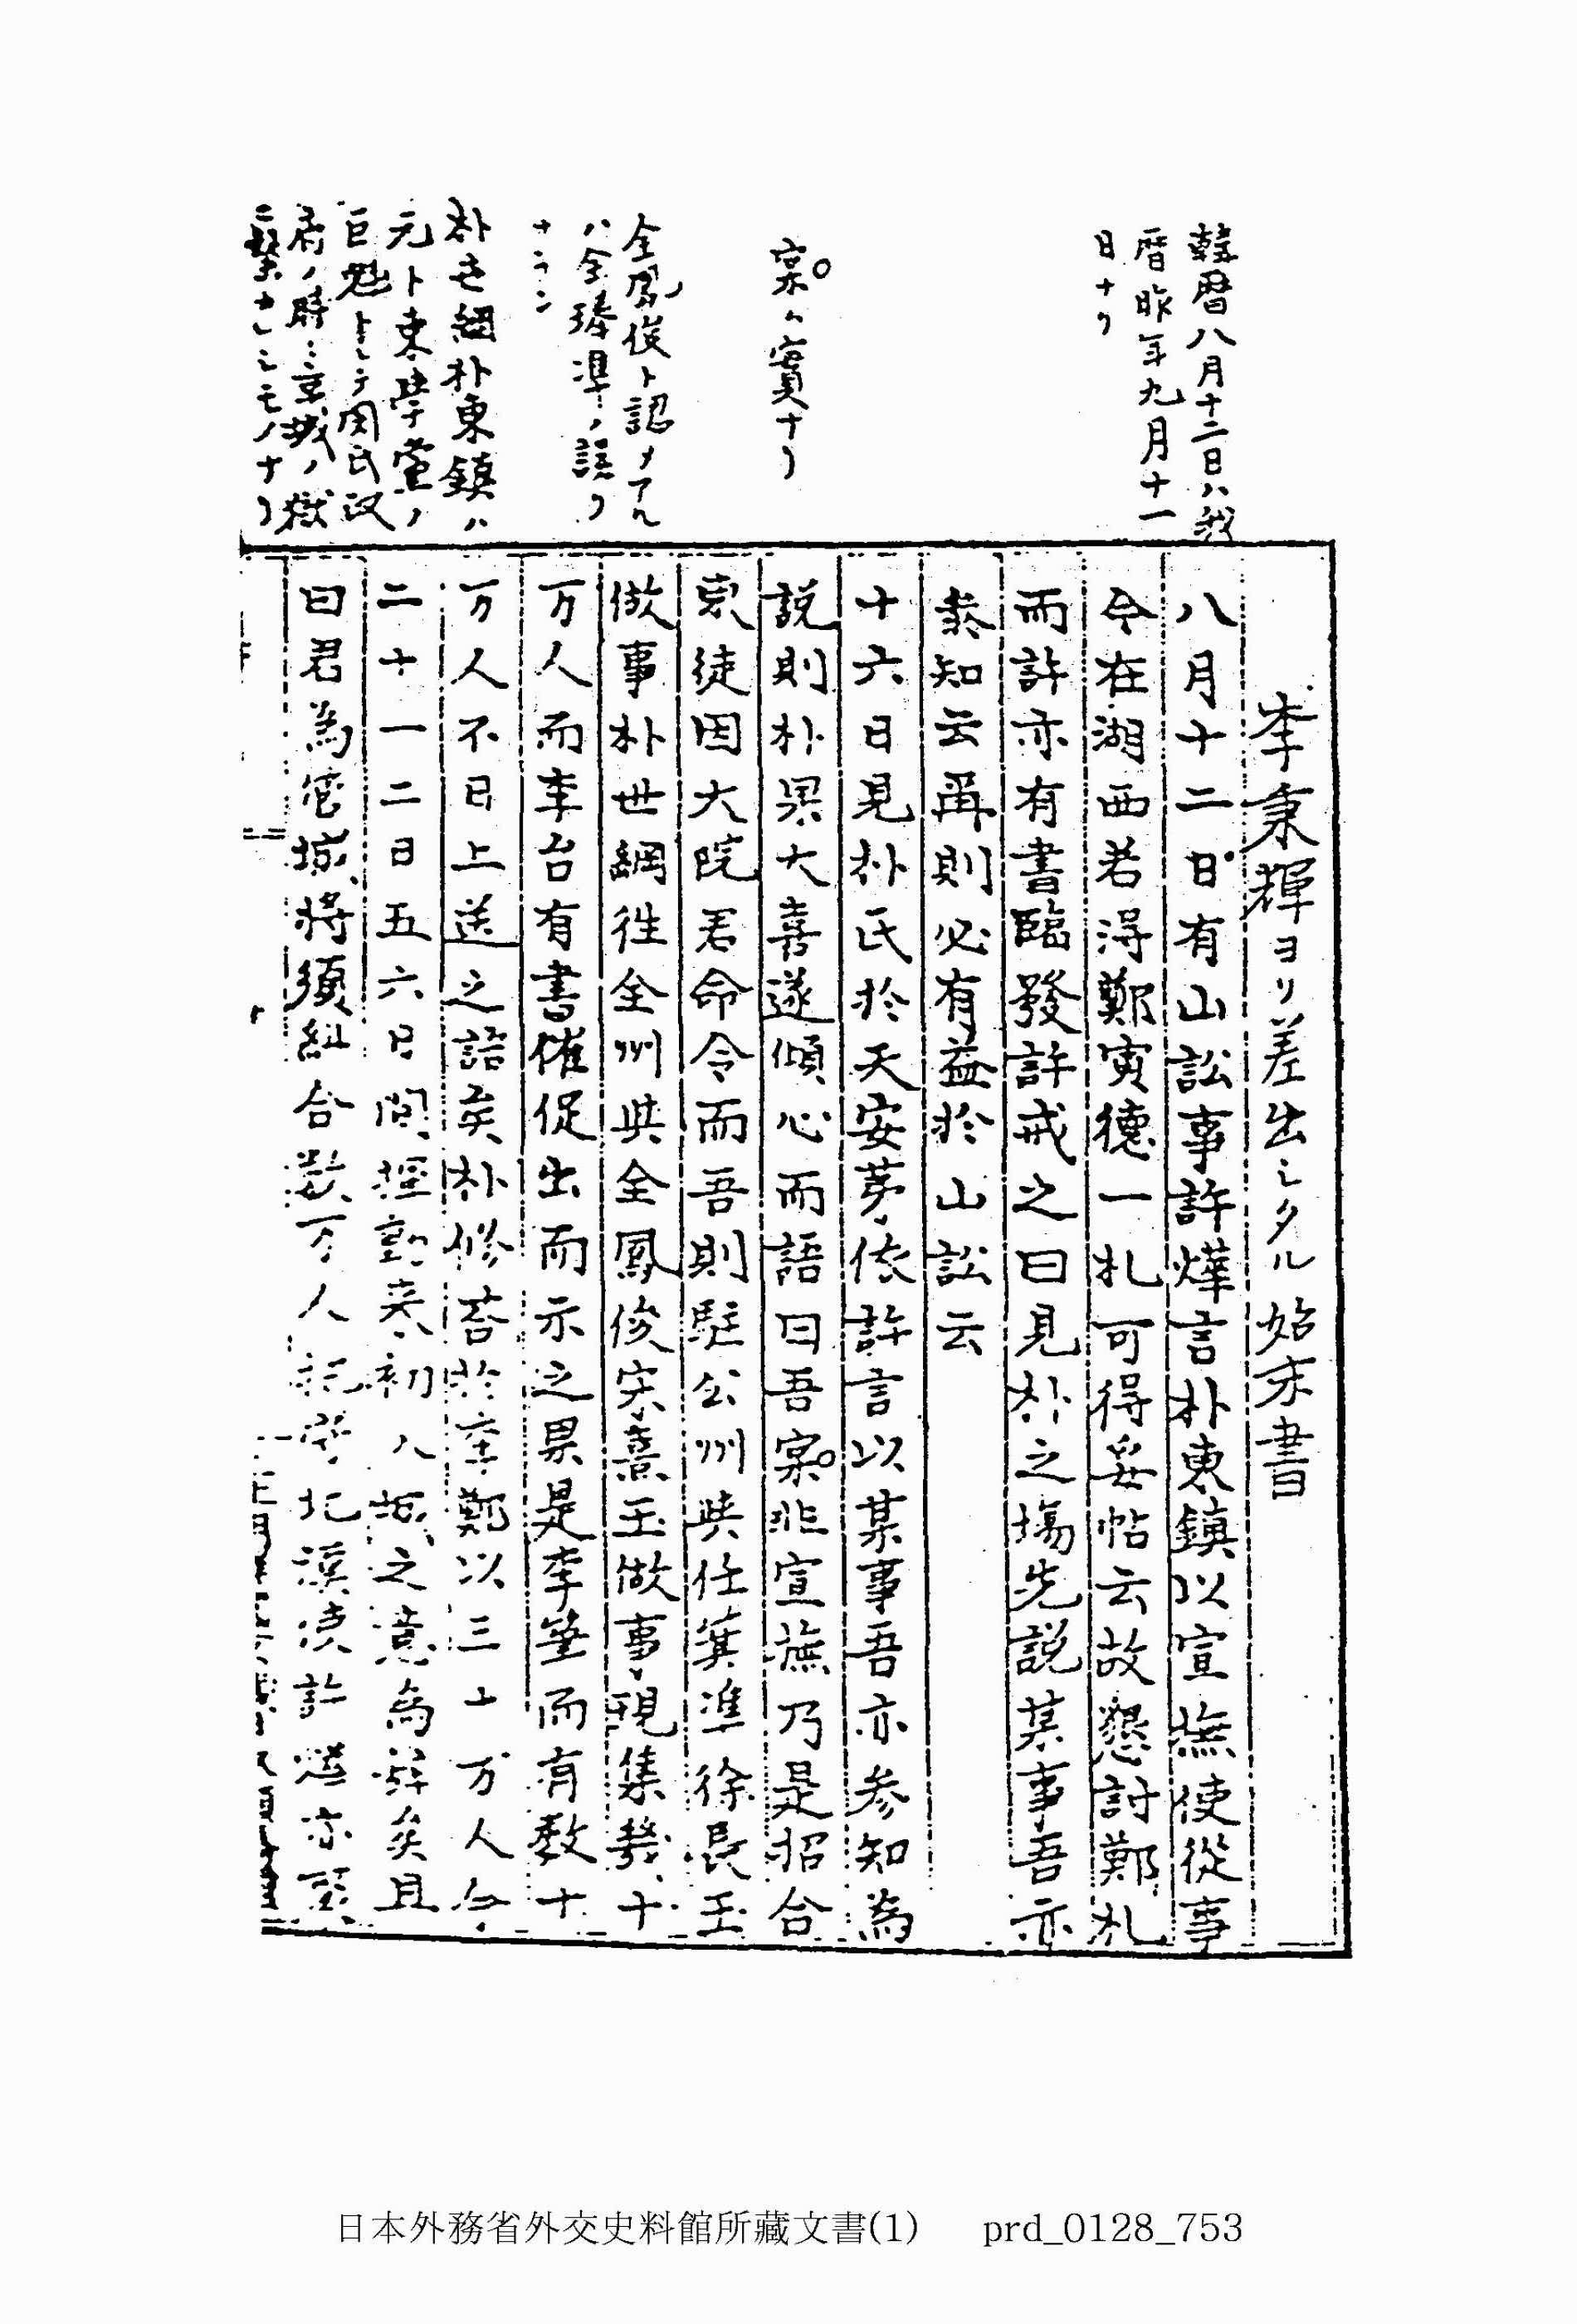 韓暦八月十二日ハ我
暦昨年九月十一
日ナリ
案ハ實ナリ
全鳳俊ト認メアル
ハ全琫準ノ誤リ
ナラン
朴世綱朴東鎮ハ
元ト東學黨ノ
巨魁トシテ閔氏政
府ノ時ニ京城ノ獄
ニ繋ナレシモノナリ
李秉輝ヨリ差出シタル始末書
八月十二日有山訟事許燁言朴東鎮以宣撫使從事
今在湖西若得鄭寅德一札可得妥帖云故懇討鄭札
而許亦有書臨發許戒之曰見朴之場先説某事吾亦
叅知云再則必有益於山訟云
十六日見朴氏於天安芧依許言以某事吾亦参知為
説則朴果大喜遂傾心而語曰吾案非宣撫乃是招合
東徒因大院君命令而吾則駐公州與任箕準徐長玉
做事朴世綱徃全州與全鳳俊宋憙玉做事現集幾十
万人而李台有書催促出而示之果是李筆而有数十
万人不日上送之語矣朴修荅於李鄭以三十万人
二十一二日五六日間 来初入城之意為辞矣且
曰君為管城將須糾合数万人